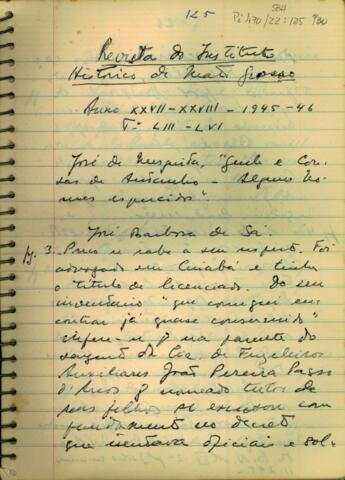 125
584
Pi 470/22:125
Revista do Instituto
Histórico de Mato Grosso
Anno XXVII-XXVIII - 1945-46
Ts. LIII - LVI
José de Mesquita, "Gente e Cou-
sas de Antanho - Alguns No-
mes esquecidos".
José Barbosa de Sá.
pg. 3. Pouco se sabe a seu respeito. Foi
advogado em Cuiabá e tinha
o titulo de licenciado. Do seu
inventário "que consegui en-
contrar já quase consumido"
infere-se q na parte do
sargento da Cia de Fuzileiros
Auxiliares João Pereira Passo
d'Arcos q nomeado tutor de
seus filhos se excusou com
fundamento no decreto
que isentava oficiais e sol-